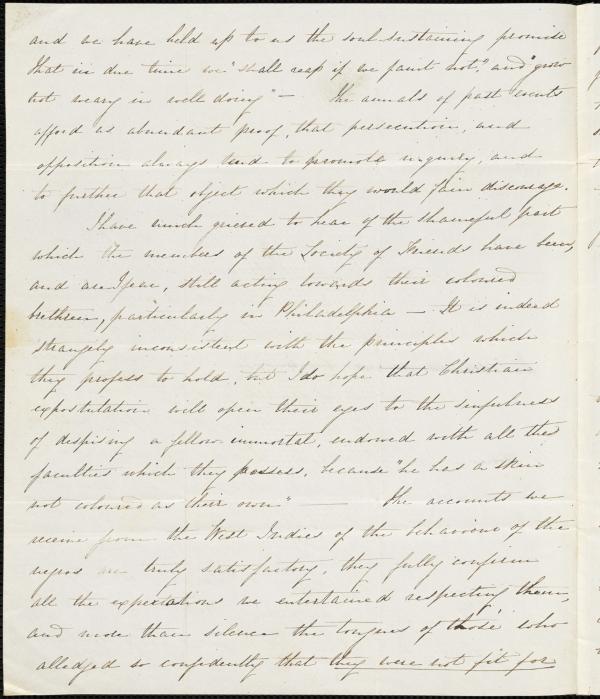 and we have held up to us the soul-sustaining promise
that in due time we "shall reap if we faint not," and "grow
not weary in well doing" — The annals of past events
afford as abundant proof, that persecution, and
opposition always tend to promote inquiry, and
to further that object which they would fain discourage.
I have much grieved to hear of the shameful part
which the members of the Society of Friends have been,
and are I fear, still acting towards their coloured
brethren, particularly in Philadelphia — It is indeed
strangely inconsistent with the principles which
they profess to hold, but I do hope that Christian
expostulation will open their eyes to the sinfulness
of despising a fellow immortal, endowed with all the
faculties which they possess, because "he has a skin
not coloured as their own" — The accounts we
receive from the West Indies of the behaviour of the
negros are truly satisfactory, they fully confirm
all the expectations we entertained respecting them,
and more than silence the tongues of those who
alledged so confidently that they were not fit for